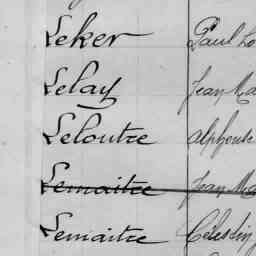 Leker Paul Lo
Lelay Jean Ma
Leloutre Alphonse
Lemaitre Jean Ma
Lemaitre Célestin